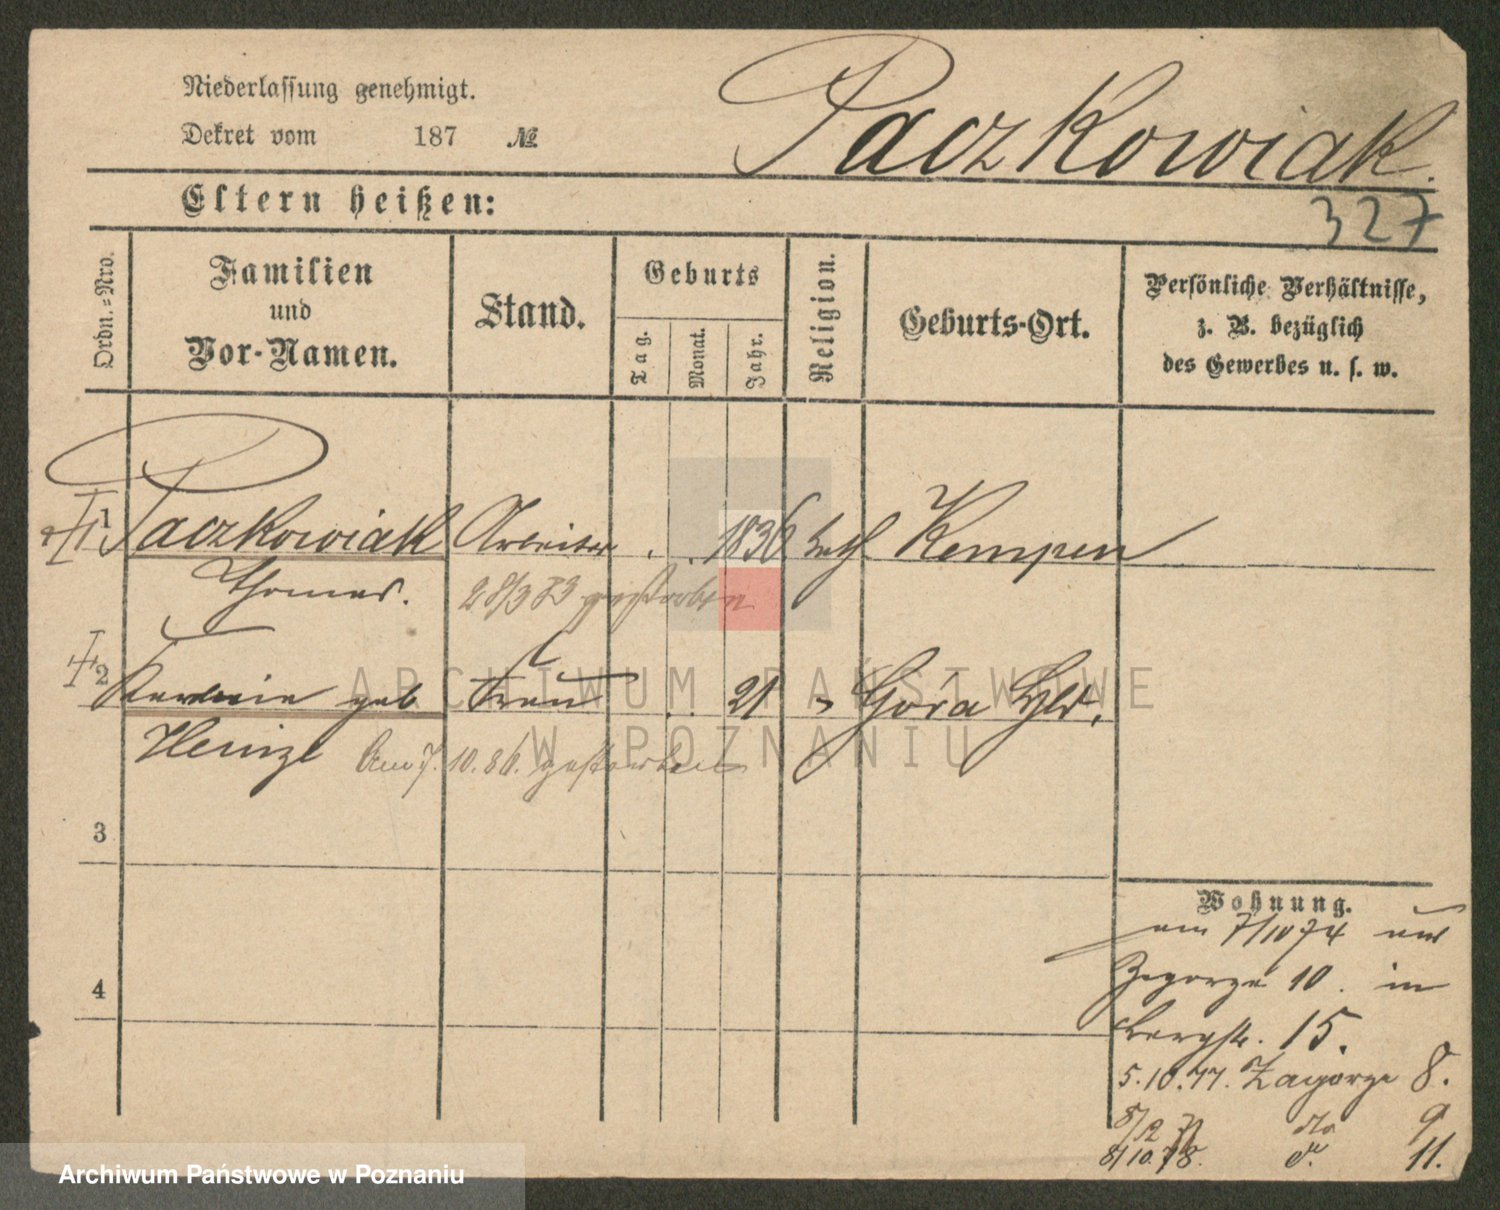 Niederlassung genehmigt.
Dekret vom 187 №
Paczkowiak.
Eltern heißen:
327
Ordn.=Nro.
Familien
und
Vor-Namen.
Stand.
Geburts
Tag.
Monat.
Jahr.
Religion.
Geburts-Ort.
Persönliche Verhältnisse,
z. B. bezüglich
des Gewerbes u. s. w.
1 Paczkowiak Arbeiter . . 1836 kath Kempen
Thomas. 28/3 83 gestorben
2 geb Frau . . 21 " Góra
Heinze Am 7.10.86. gestorben
3
4
Wohnung.
am 7/10 74 aus
Zagorze 10. in
Bergstr. 15.
5.10.77. Zagorze 8.
8/12 do 9
8/10.78. d. 11.
ARCHIWUM PAŃSTWOWE
W POZNANIU
Archiwum Państwowe w Poznaniu